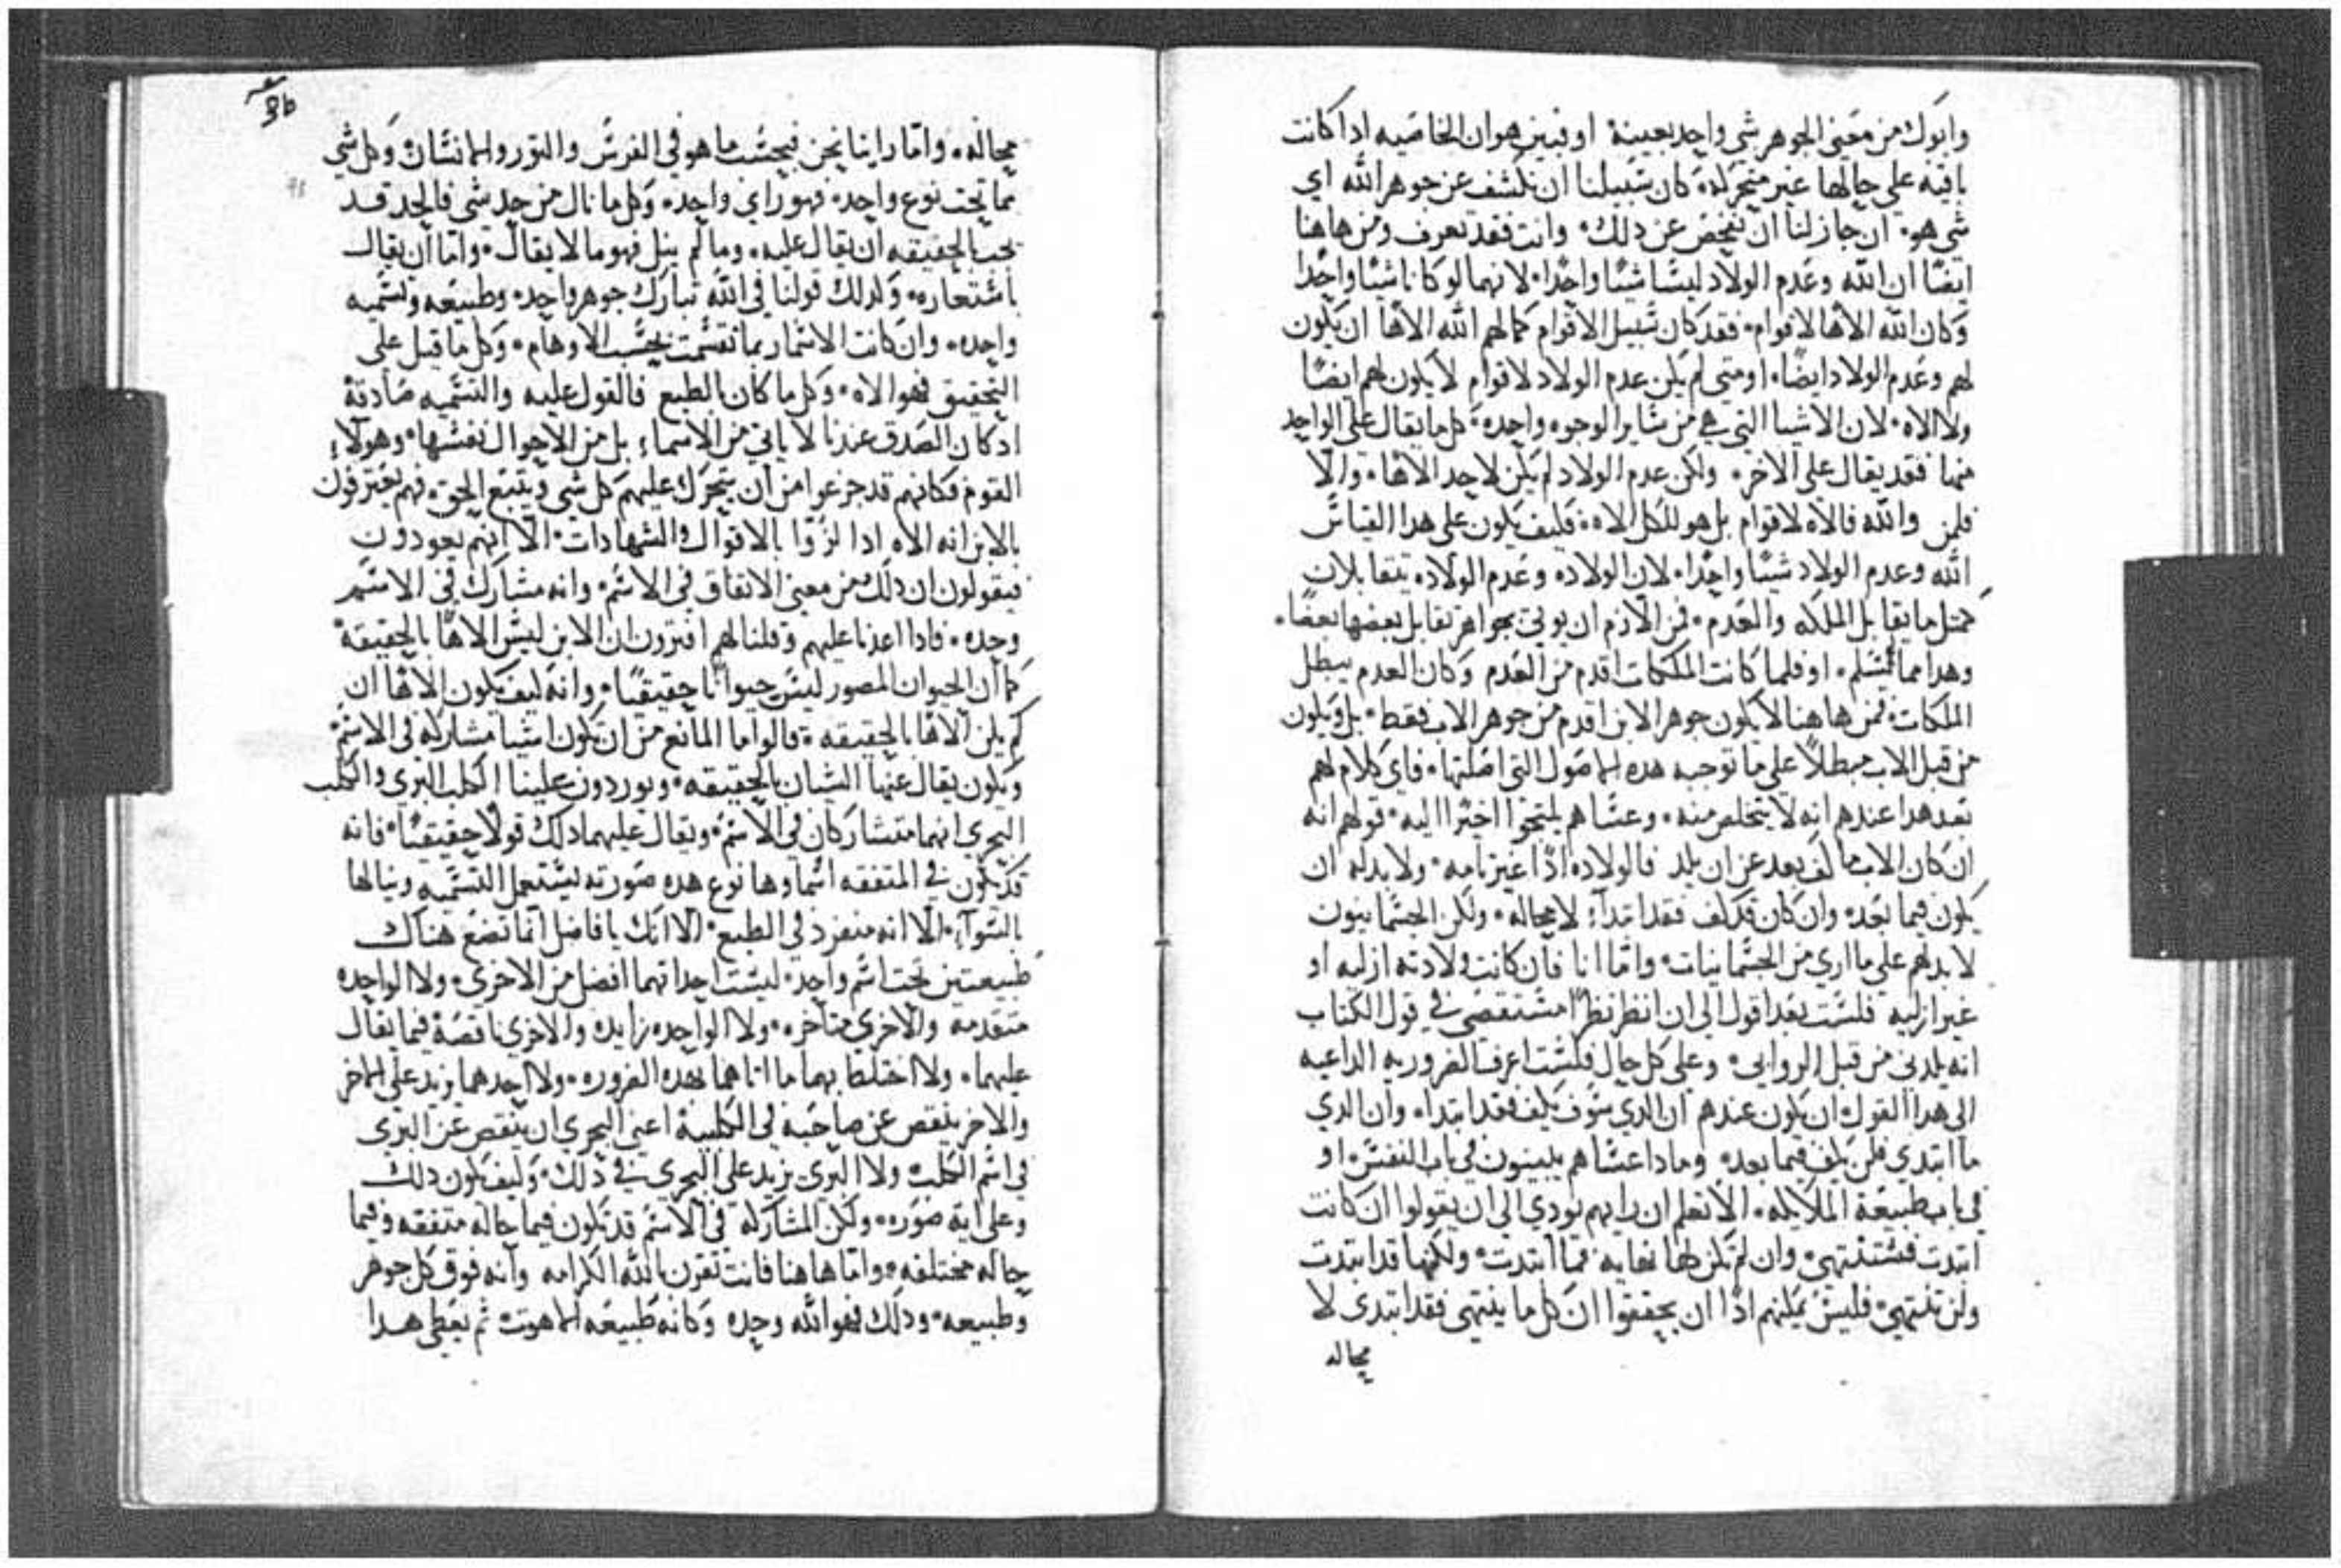 وابوك من معنى الجوهر شي واحد بعينه او فبين هو ان الخاصيه ادا كانت
باقيه علي حالها غير متحركه كان سبيلنا ان نكشف عن جوهر الله اي
شي هو ان جاز لنا ان نفحص عن دلك وانت فقد تعرف ومن هاهنا
ايضًا ان الله وعدم الولاد ليسا شيًا واحدًا لانهما لو كانا شيًا واحدًا
وكان الله الاهًا لاقوام فقد كان سبيل الاقوام كما لهم الله الاهًا ان يكون
لهم وعدم الولاد ايضًا او متى لم يكن عدم الولاد لاقوام لا يكون لهم ايضًا
ولا الاه لان الاشيا التي هي من ساير الوجوه واحده كل ما يقال على الواحد
منها فقد يقال على الاخر ولكن عدم الولاد لم يكن لاحد الاهًا والا
فلمن والله فالاه لاقوام بل هو للكل الاه فكيف يكون على هدا القياس
الله وعدم الولاد شيًا واحدًا لان الولاده وعدم الولاده يتقابلان
كمثل ما يقابل الملكه والعدم فمن الازم ان يوتى بجواهر تقابل بعضها بعضًا
وهدا مما لا يسلم او فلما كانت الملكات اقدم من العدم وكان العدم يبطل
الملكات فمن هاهنا لا يكون جوهر الابن اقدم من جوهر الاب فقط بل ويكون
من قبل الاب مبطلًا على ما توجبه هده الاصول التي اصلتها فاي كلام لهم
بعد هدا عندهم انه لا يتخلص منه وعساهم يلتجوا اخيرًا اليه قولهم انه
ان كان الاب ما كف بعد عن ان يلد فالولاده ادًا غير تامه ولا بد له ان
يكون فيما بعد وان كان قد كف فقد ابتدآ لا محاله ولكن الجسمانيون
لا بد لهم على ما اري من الجسمانيات واما انا فان كانت ولادته ازليه او
غير ازليه فلست بعد اقول الى ان انظر نظرًا مستقصى في قول الكتاب
انه يلدني من قبل الروابي وعلى كل حال فلست اعرف الضروريه الداعيه
الى هدا القول ان يكون عندهم ان الدي سوف يكف فقد ابتدا وان الدي
ما ابتدي فلن يكف فيما بعد وما دا عساهم يلبسون في باب النفس او
في باب طبيعة الملايكه الا تعلم ان رايهم يودي الى ان يقولوا ان كانت
ابتدت فستنتهي وان لم تكن لها نهايه فما ابتدت ولكنها قد ابتدت
ولن تنتهي فليس يمكنهم ادًا ان يحققوا ان كل ما ينتهي فقد ابتدى لا
محاله
36
محاله واما راينا نحن فبحسب ما هو في الفرس والثور والانسان وكل شي
مما تحت نوع واحد فهو راي واحد وكل ما نال من حد شي فالحد قد
يجب بالحقيقه ان يقال عليه وما لم ينل فهو ما لا يقال واما ان يقال
باستعاره ولدلك قولنا في الله تبارك جوهر واحد وطبيعه وتسميه
واحده وان كانت الاسما ربما تقسمت بحسب الاوهام وكل ما قيل على
التحقيق فهو الاه وكل ما كان بالطبع فالقول عليه والتسميه صادقة
اد كان الصدق عندنا لا ياتي من الاسماء بل من الاحوال نفسها وهولاء
القوم فكانهم قد جزعوا من ان يتحرك عليهم كل شي ويتبع الحق فهم يعترفون
بالابن انه الاه ادا لزوا بالاقوال والشهادات الا انهم يعودون
فيقولون ان دلك من معنى الاتفاق في الاسم وانه مشارك في الاسم
وحده فادا اعدنا عليهم وقلنا لهم افترون ان الابن ليس الاهًا بالحقيقة
كما ان الحيوان المصور ليس حيوانًا حقيقيًا وانه كيف يكون الاهًا ان
لم يكن الاهًا بالحقيقه قالوا ما المانع من ان تكون اشيا مشاركه في الاسم
ويكون يقال عنها الشيان بالحقيقه ويوردون علينا الكلب البري والكلب
البحري انهما متشاركان في الاسم ويقال عليهما دلك قولًا حقيقيًا فانه
قد يكون في المتفقه اسماوها نوع هده صورته يستعمل التسميه وينالها
بالسوآء الا انه منفرد في الطبع الا انك يا فاضل انما تضع هناك
طبيعتين تحت اسم واحد ليست احداتهما افضل من الاخري ولا الواحده
متقدمه والاخري متاخره ولا الواحده زايده والاخري ناقصة فيما يقال
عليهما ولا اختلط بهما ما اتاهما بهده الضروره ولا احدهما يزيد على الاخر
والاخر ينقص عن صاحبه في الكلبية اعني البحري ان ينقص عن البرى
في اسم الكلب ولا البري يزيد على البحري في ذلك وكيف يكون دلك
وعلى اية صوره ولكن المشاركه في الاسم قد تكون فيما حاله متفقه وفيما
حاله مختلفه واما هاهنا فانت تقرن بالله الكرامه وانه فوق كل جوهر
وطبيعه ودلك فهو الله وحده وكانه طبيعه اللاهوت ثم يعطي هدا